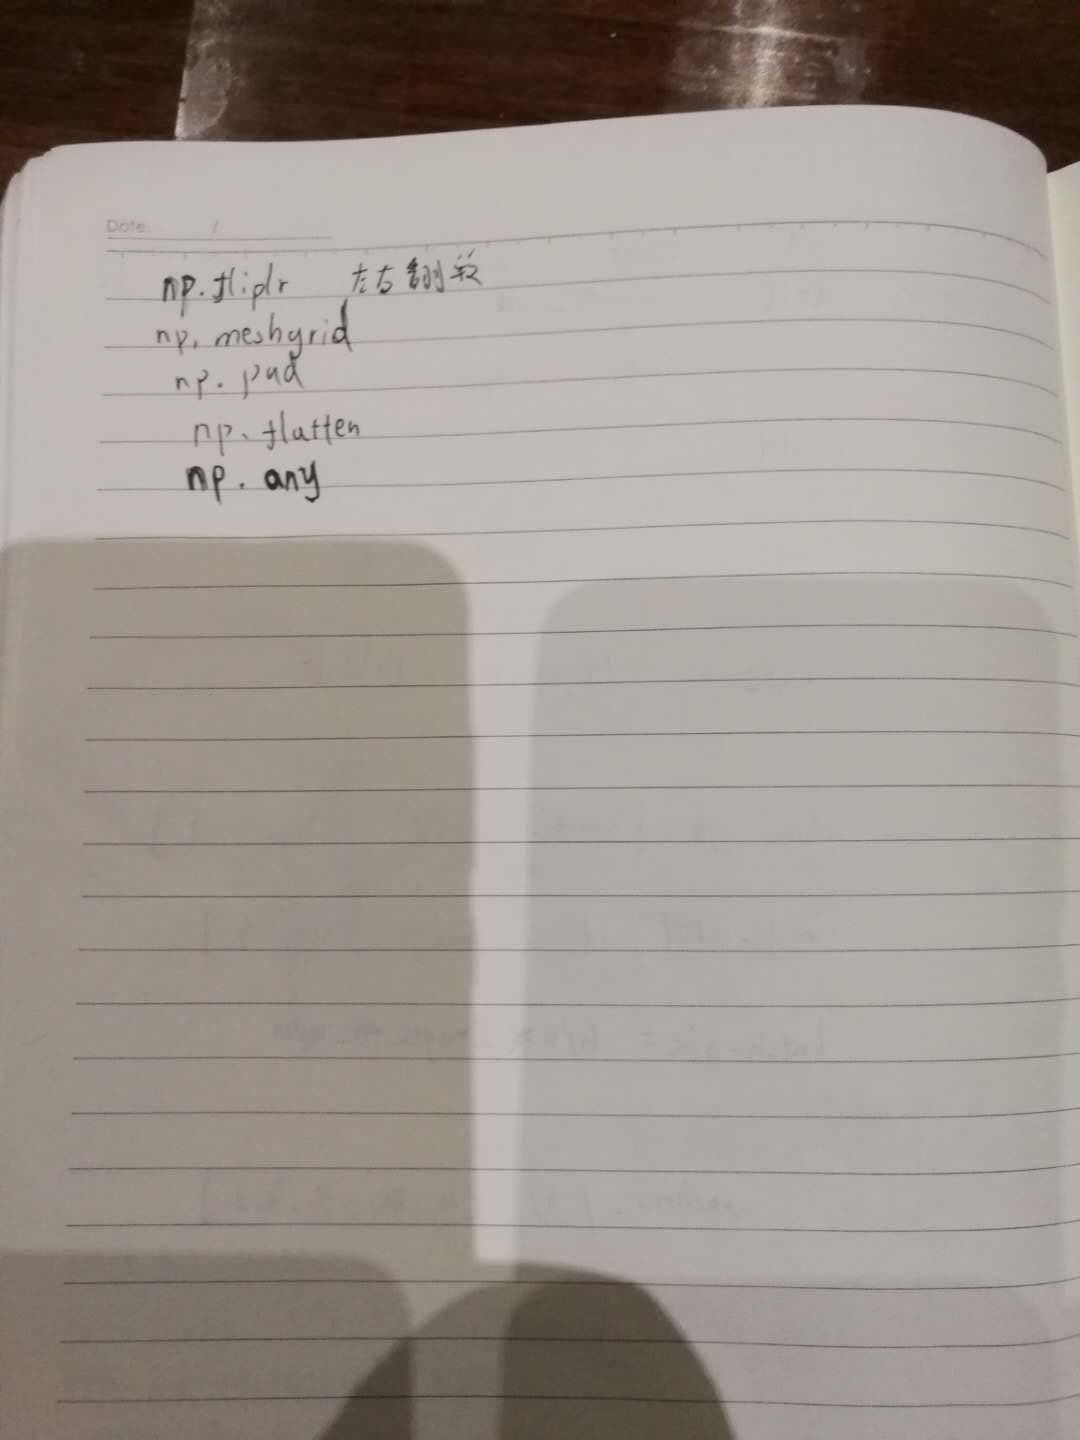 Date: /
np.fliplr 左右翻转
np. meshgrid
np. pad
np. flatten
np. any